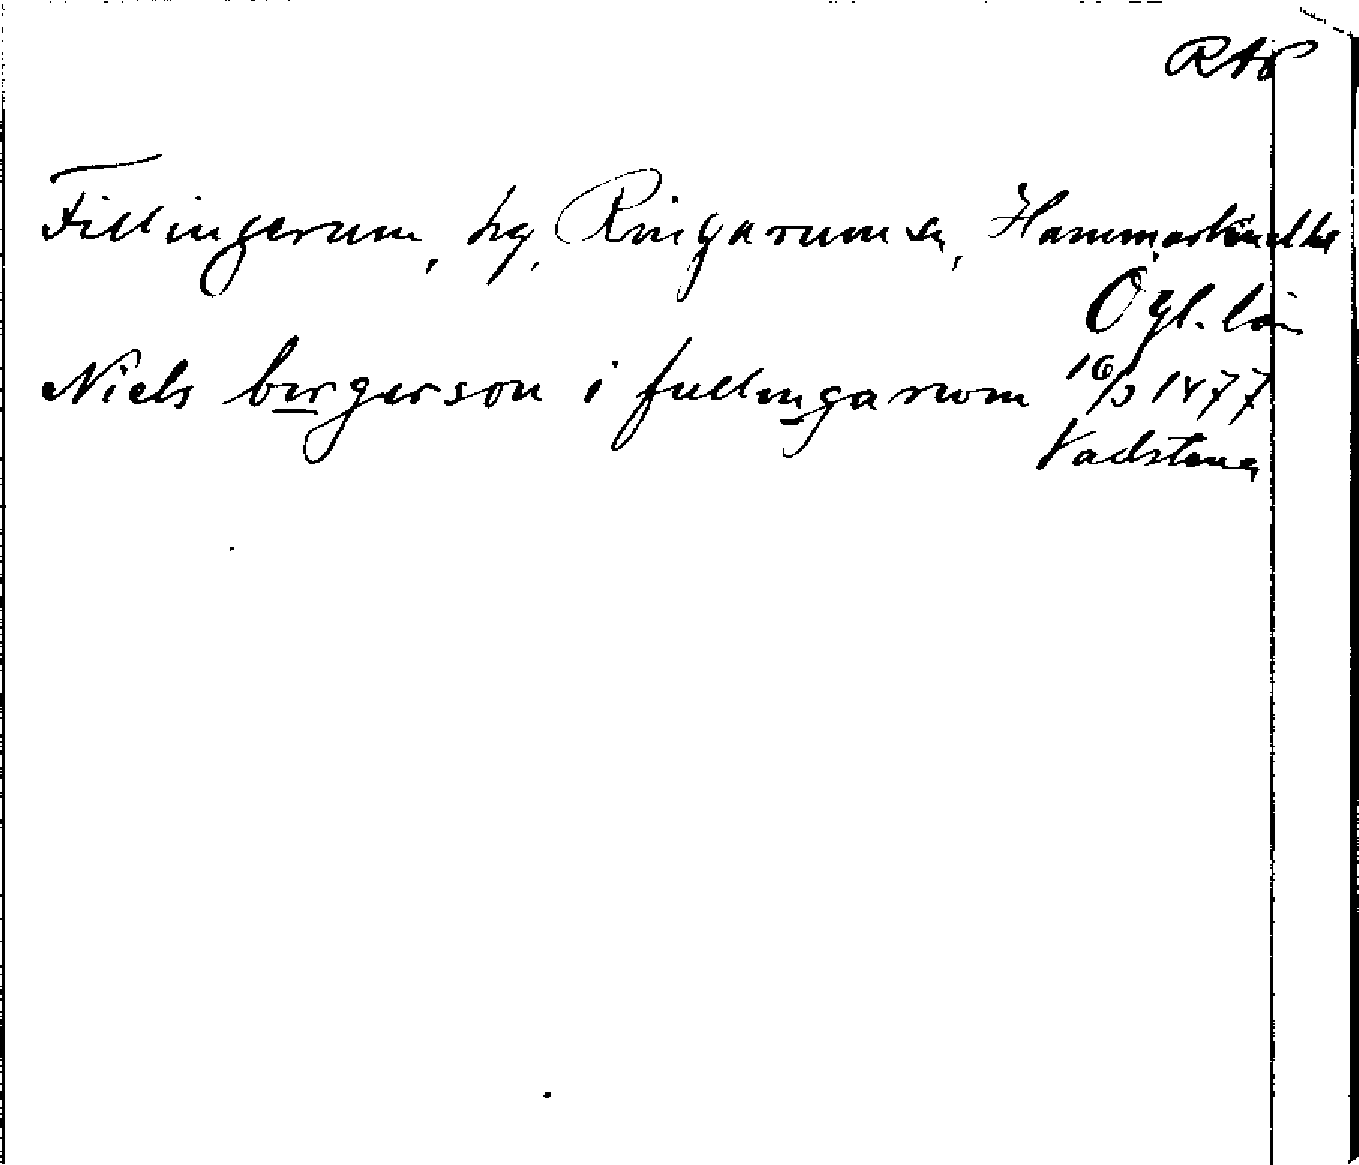 RAP
Fillingerum, hg, Ringarums sn, Hammarkinds hd
Ögl. län
Niels birgerson i fullingarwm 16/3 1477
Vadstena